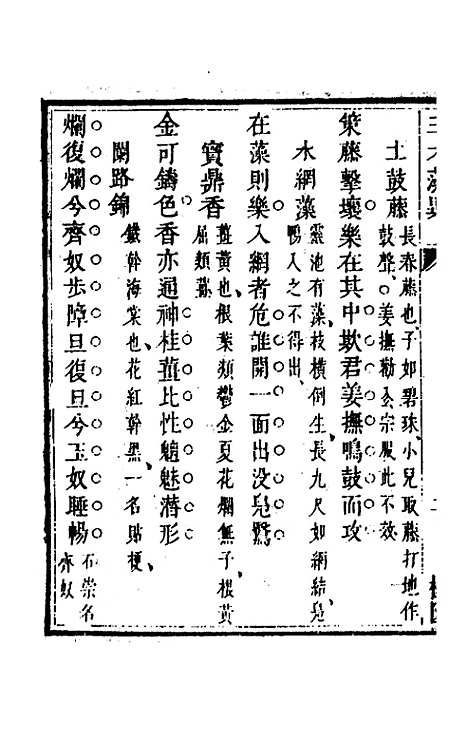 土鼓藤 長春藤也、子如碧珠、小兒取藤打地作
鼓聲、○姜撫勸玄宗服此不效
策藤擊壤樂在其中欺君姜撫鳴鼓而攻
水網藻 靈池有藻、枝橫倒生、長九尺如網結、鳧
鴨入之不得出、
在藻則樂入網者危誰開一面出没鳧鷖
寶鼎香 薑黄也、根葉類鬱金夏花爛無子、根黄
屈類蘇
金可鑄色香亦通神桂薑比性魑魅潛形
鬧路錦 鐵幹海棠也、花紅幹黑、一名貼梗、
爛復爛兮齊奴步障旦復旦兮玉奴睡暢 石崇名
齊奴